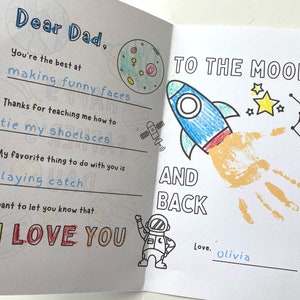 Dear Dad,
You're the best at
making funny faces
Thanks for teaching me how to
tie my shoelaces
My favorite thing to do with you is
laying catch
ant to let you know that
I LOVE YOU
TO THE MOON
AND
BACK
Love, Olivia